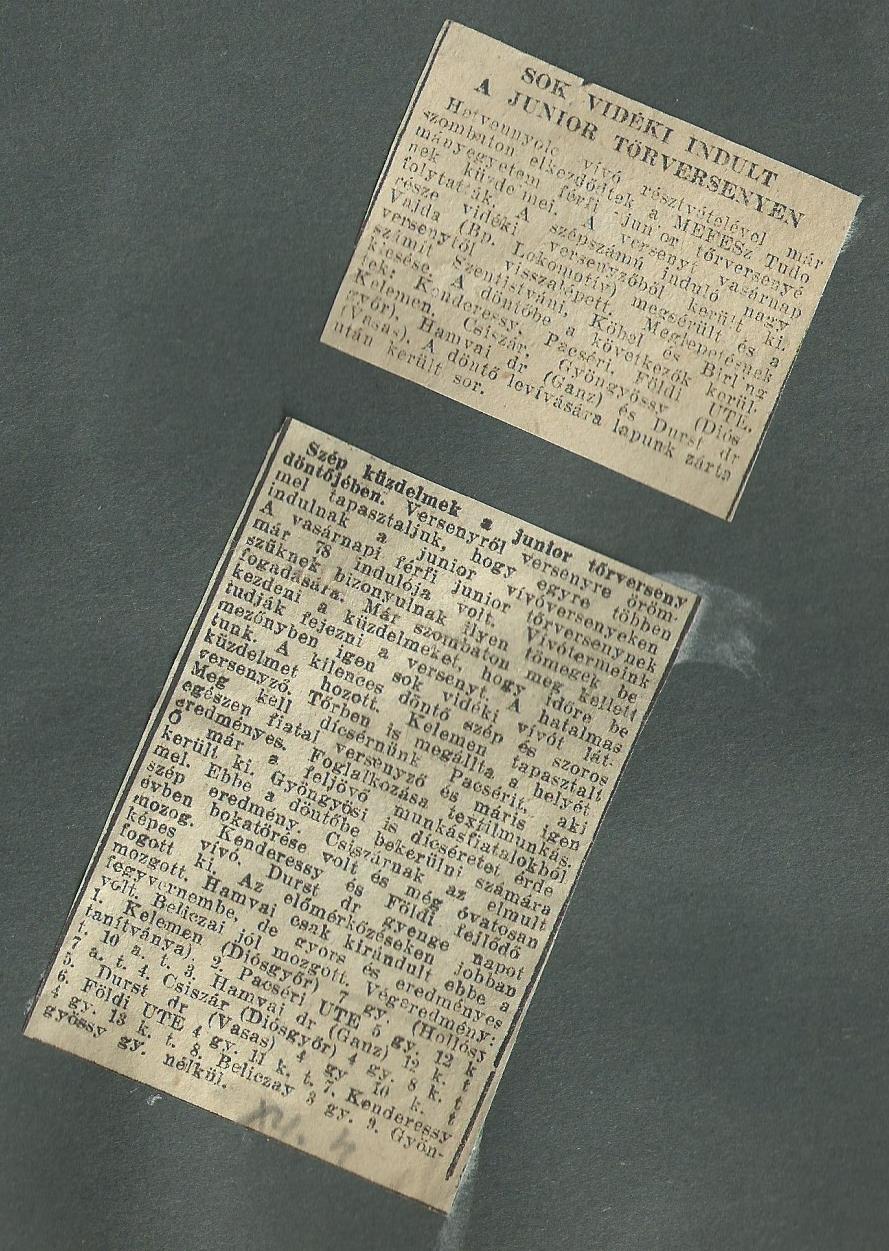 SOK VIDÉKI INDULT
A JUNIOR TŐRVERSENYEN
Hetvennyolc vívó részvételével már
szombaton elkezdődtek a MEFESz Tudo
mányegyetem férfi junior tőrversenyé
nek küzdelmei. A versenyt vasárnap
folytatták. A szépszámú induló nagy
része vidéki versenyzőből került ki.
Vajda (Bp. Lokomotiv) megsérült és a
versenytől visszalépett. Meglepetésnek
számít Szentistváni, Köbel és Birling
kiesése. A döntőbe a következők kerül-
tek: Kenderessy, Pacséri, Földi UTE,
Kelemen, Csiszár, Gyöngyössy (Diós
győr), Hamvai dr (Ganz) és Durst dr
(Vasas). A döntő levívására lapunk zárta
után került sor.
Szép küzdelmek a junior tőrverseny
döntőjében. Versenyről versenyre öröm-
mel tapasztaljuk, hogy egyre többen
indulnak a junior vívóversenyeken
A vasárnapi férfi junior tőrversenynek
már 78 indulója volt. Vívótermeink
szűknek bizonyulnak ilyen tömegek be
fogadására. Már szombaton meg kellett
kezdeni a küzdelmeket, hogy időre be
tudják fejezni a versenyt. A hatalmas
mezőnyben igen sok vidéki vívót lát-
tunk. A kilences döntő szép és szoros
küzdelmet hozott. Kelemen tapasztalt
versenyző. Tőrben is megállta a helyét
Meg kell dícsérnünk Pacsérit, aki
egészen fiatal versenyző és máris igen
eredményes. Foglalkozása textilmunkás.
Ő már a feljövő munkásfiatalokból
került ki. Gyöngyösi is dícséretet érde
mel. Ebbe a döntőbe bekerülni számára
szép eredmény. Csiszárnak az elmult
évben bokatörése volt és még óvatosan
mozog. Kenderessy és Földi fejlődő
képes vívó. Durst dr gyenge napot
fogott ki. Az előmérkőzéseken jobban
mozgott. Hamvai csak kirándult ebbe a
fegyvernembe, de gyors és eredményes
volt. Beliczai jól mozgott. Végeredmény:
1. Kelemen (Diósgyőr) 7 gy. (Hollósy
tanítványa). 2. Pacséri UTE 5 gy. 12 k
t. 10 a. t. 3. Hamvai dr (Ganz) 12 k. t
7 a. t. 4. Csiszár (Diósgyőr) 4 gy. 8 k. t
5. Durst dr (Vasas) 4 gy. 10 k. t
6. Földi UTE 4 gy. 11 k. t. 7. Kenderessy
4 gy. 13 k. t. 8. Beliczay 3 gy. 9. Gyön-
gyössy gy. nélkül.
XII. 4